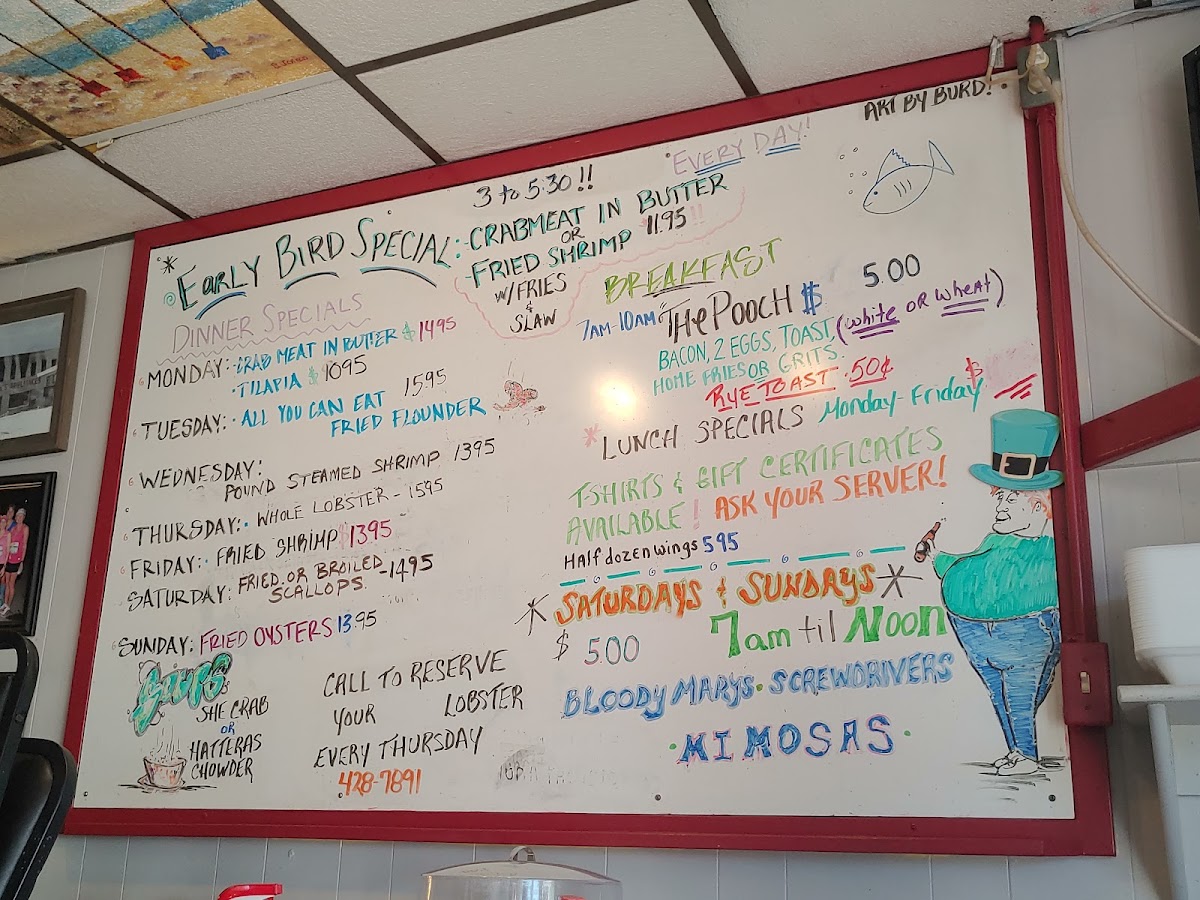 ART BY BURD!
EVERY DAY!
3 to 5:30!!
* EARLY BIRD SPECIAL: CRABMEAT IN BUTTER
OR
FRIED SHRIMP 11.95!!
W/FRIES
&
SLAW
DINNER SPECIALS
MONDAY: CRAB MEAT IN BUTTER $1495
• TILAPIA $1095
TUESDAY: • ALL YOU CAN EAT 1595
FRIED FLOUNDER
WEDNESDAY:
POUND STEAMED SHRIMP 1395
THURSDAY: • WHOLE LOBSTER - 1595
FRIDAY: • FRIED SHRIMP $1395
SATURDAY: FRIED OR BROILED -1495
SCALLOPS
SUNDAY: FRIED OYSTERS 13.95
SOUPS
SHE CRAB
OR
HATTERAS
CHOWDER
CALL TO RESERVE
YOUR LOBSTER
EVERY THURSDAY
428-7891
BREAKFAST
7AM-10AM "THE POOCH $ 5.00
BACON, 2 EGGS, TOAST, (White OR Wheat)
HOME FRIES OR GRITS.
RYE TOAST .50¢
* LUNCH SPECIALS Monday-Friday $
TSHIRTS & GIFT CERTIFICATES
AVAILABLE! ASK YOUR SERVER!
Half dozen wings 595
* SATURDAYS & SUNDAYS *
$ 5.00 7am til NOON
BLOODY MARYS • SCREWDRIVERS
• MIMOSAS •